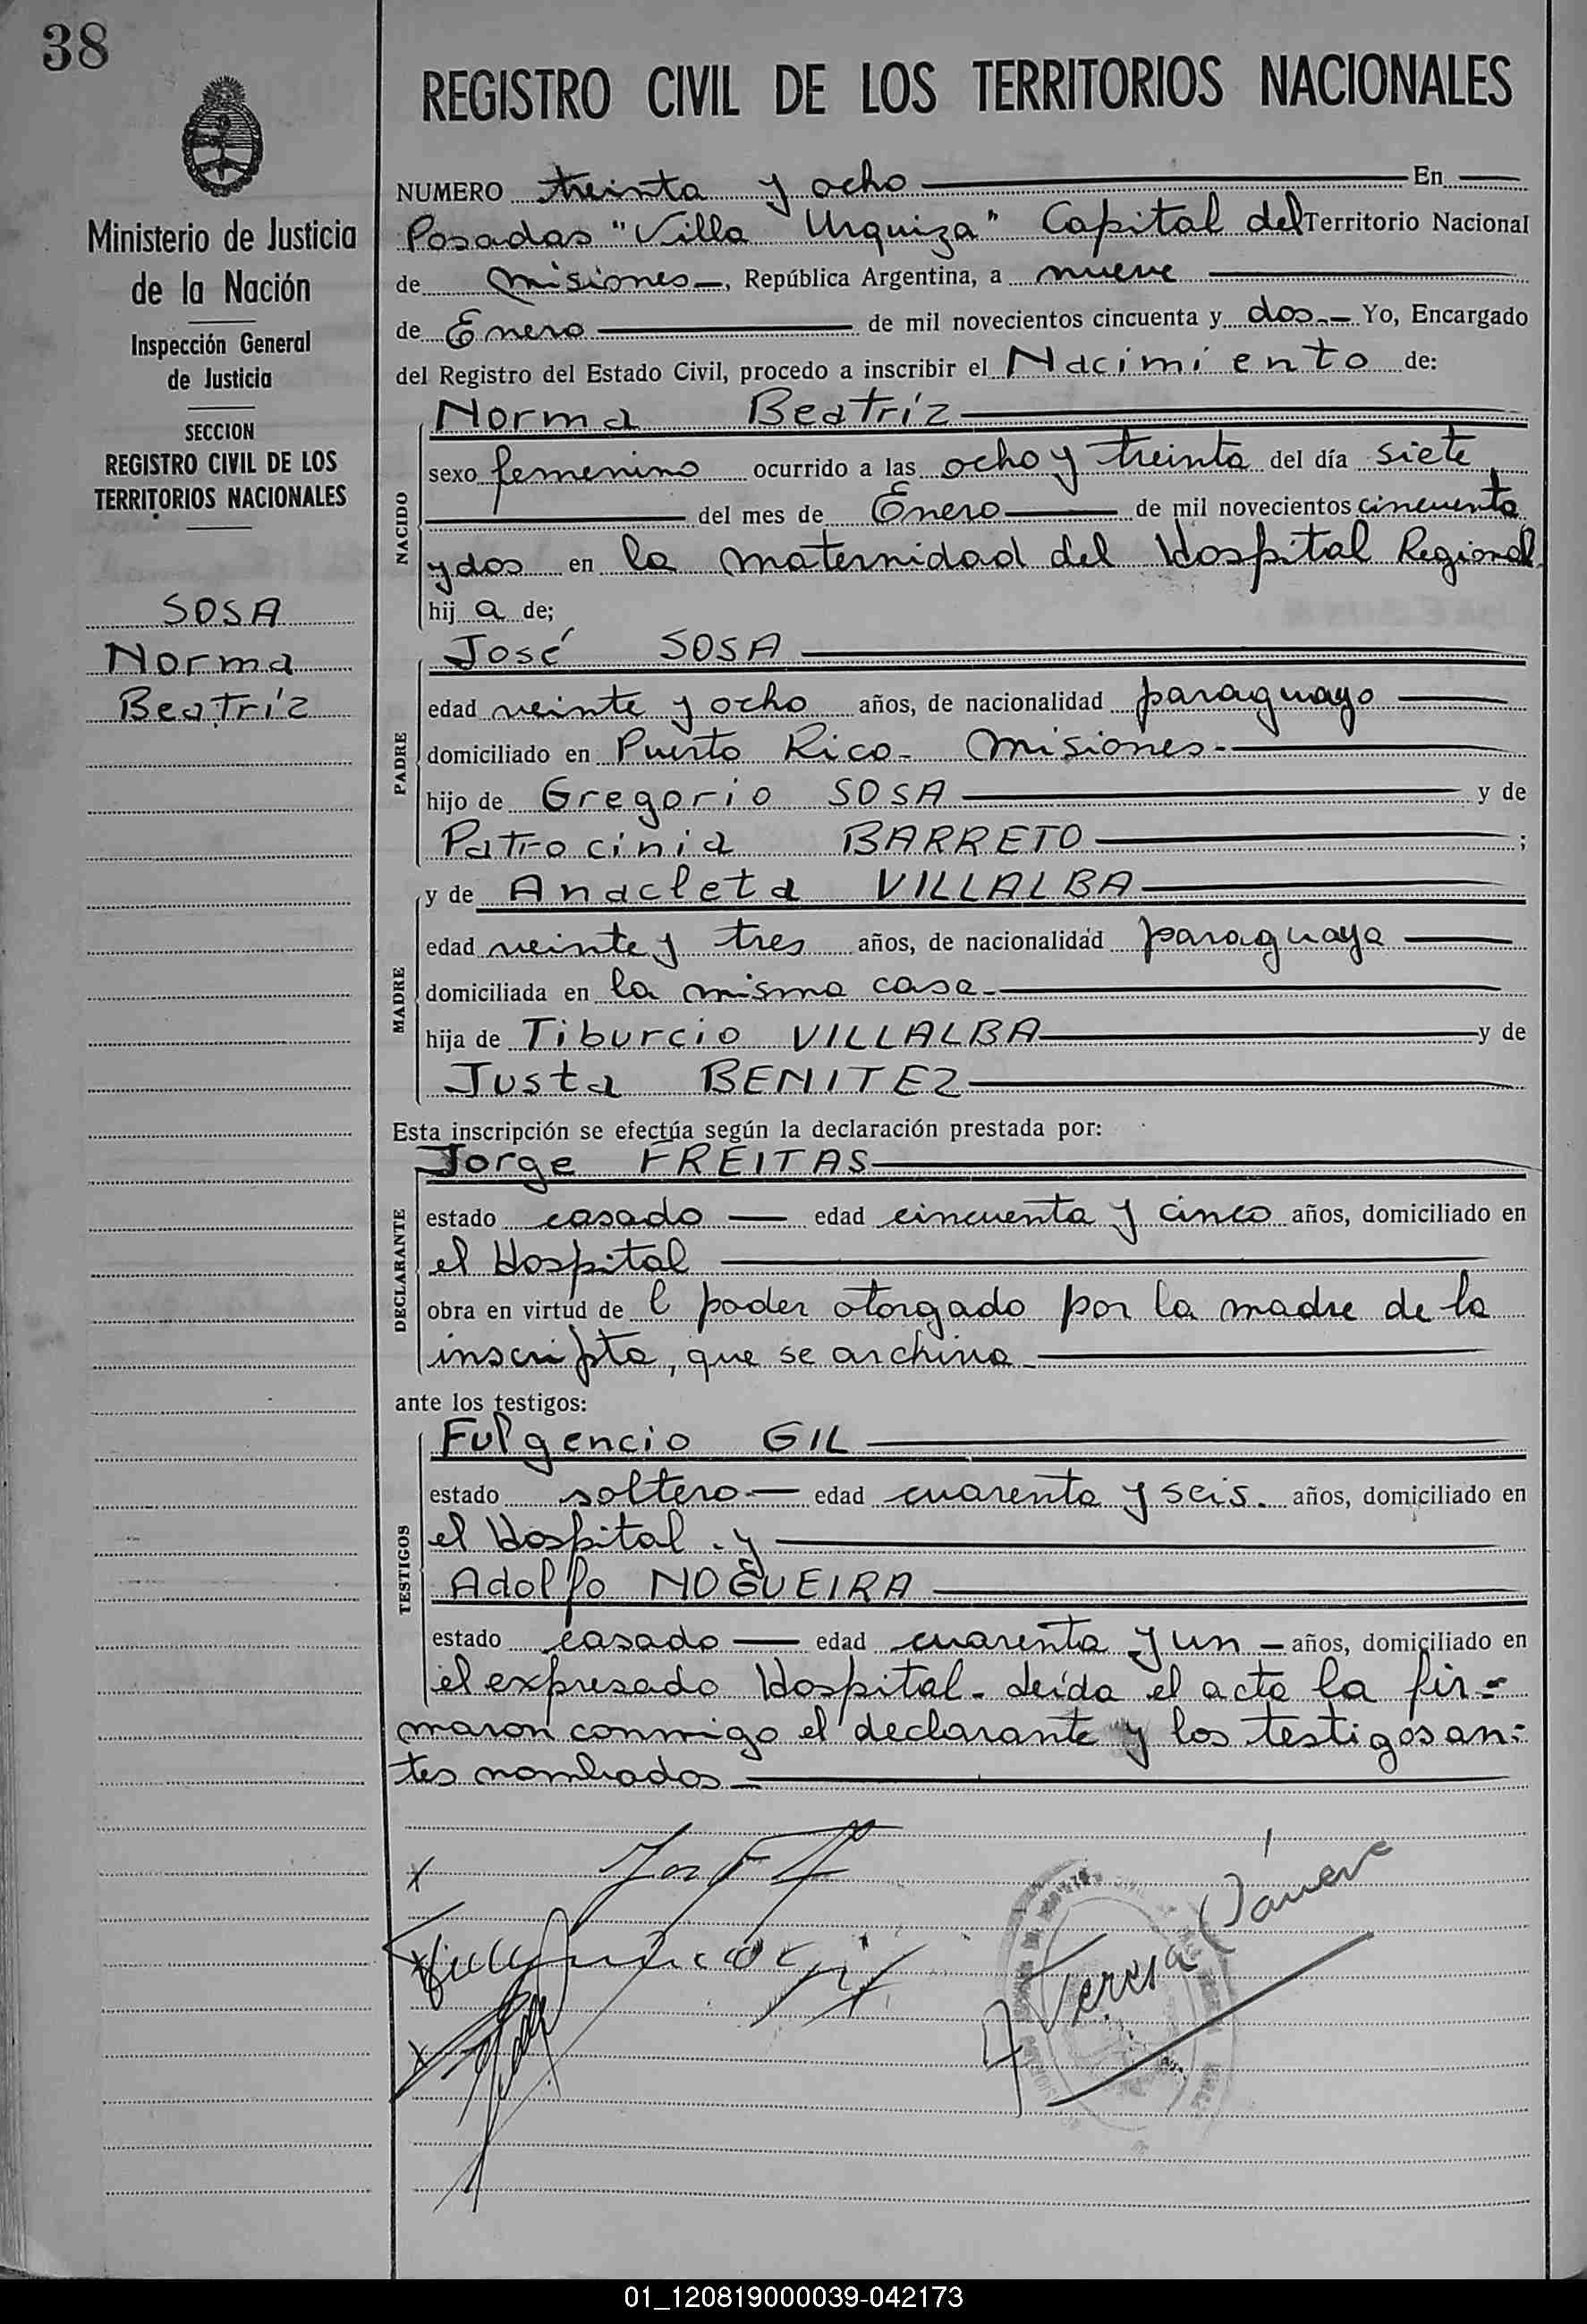 38
REGISTRO CIVIL DE LOS TERRITORIOS NACIONALES
Ministerio de Justicia
de la Nación
Inspección General
de Justicia
SECCION
REGISTRO CIVIL DE LOS
TERRITORIOS NACIONALES
SOSA
Norma
Beatríz
NUMERO treinta y ocho En
Posadas "Villa Urquiza" Capital del Territorio Nacional
de Misiones, República Argentina, a nueve
de Enero de mil novecientos cincuenta y dos. Yo, Encargado
del Registro del Estado Civil, procedo a inscribir el Nacimiento de:
NACIDO
Norma Beatríz
sexo femenino ocurrido a las ocho y treinta del día siete
del mes de Enero de mil novecientos cincuenta
y dos en la maternidad del Hospital Regional
hij a de;
PADRE
José SOSA
edad veinte y ocho años, de nacionalidad paraguayo
domiciliado en Puerto Rico - Misiones.-
hijo de Gregorio SOSA y de
Patrocinia BARRETO ;
MADRE
y de Anacleta VILLALBA
edad veinte y tres años, de nacionalidad paraguaya
domiciliada en la misma casa.
hija de Tiburcio VILLALBA y de
Justa BENITEZ
Esta inscripción se efectúa según la declaración prestada por:
DECLARANTE
Jorge FREITAS
estado casado edad cincuenta y cinco años, domiciliado en
el Hospital
obra en virtud de l poder otorgado por la madre de la
inscripta, que se archiva.
ante los testigos:
TESTIGOS
Fulgencio GIL
estado soltero edad cuarenta y seis. años, domiciliado en
el Hospital. y
Adolfo NOGUEIRA
estado casado edad cuarenta y un años, domiciliado en
el expresado Hospital. Leída el acta la fir=
maron conmigo el declarante y los testigos an=
tes nombrados
Teresa
01_120819000039-042173